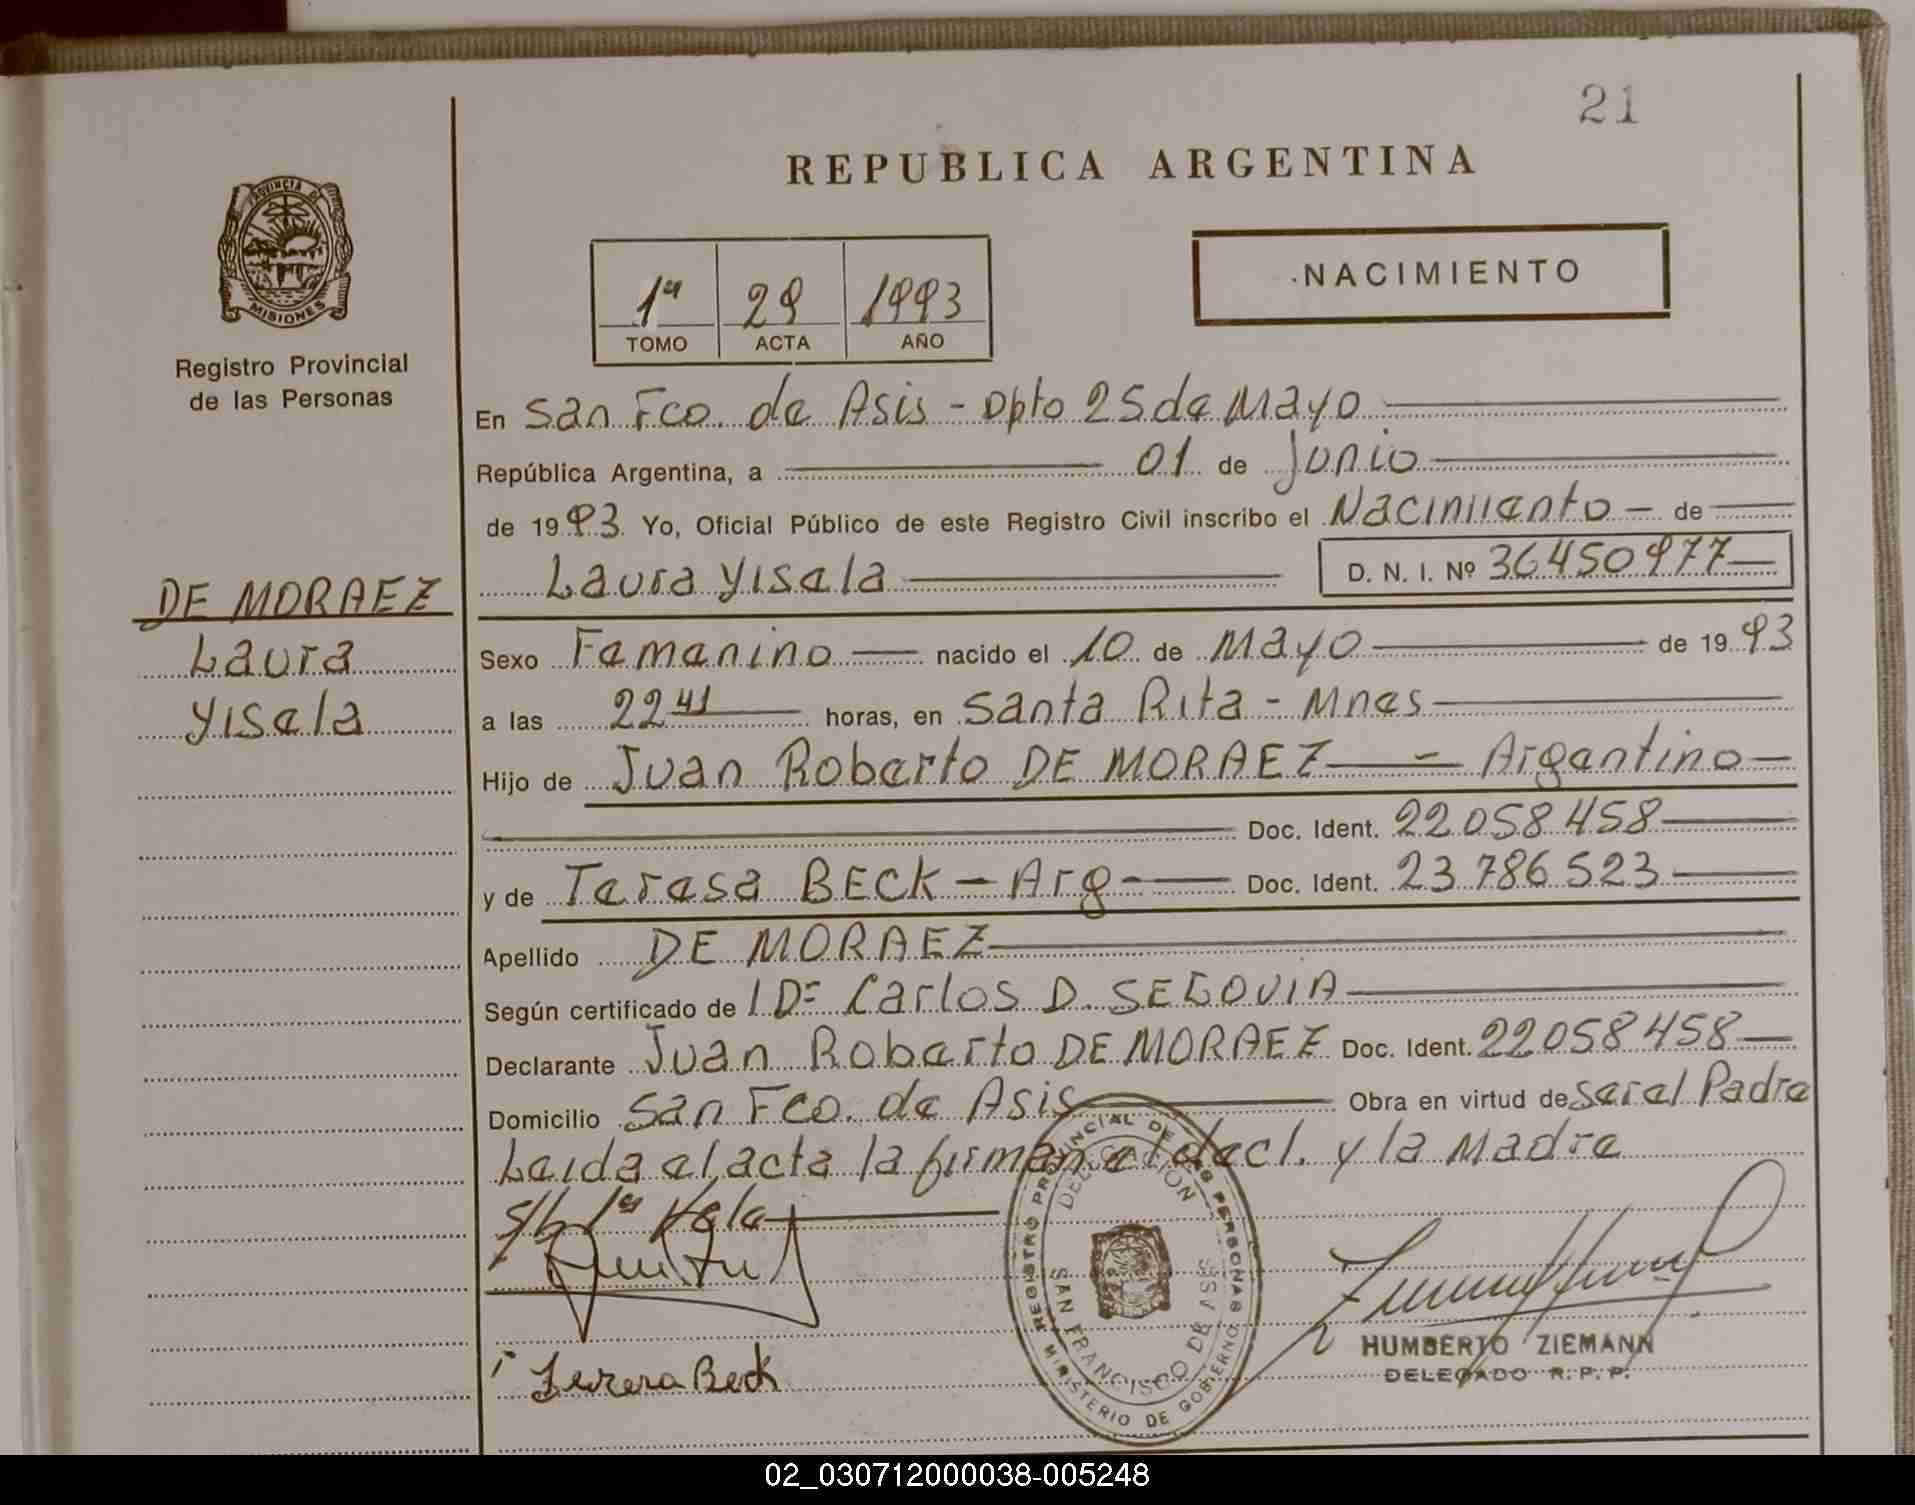 21
REPUBLICA ARGENTINA
PROVINCIA DE
MISIONES
Registro Provincial
de las Personas
1ª 29 1993
TOMO ACTA AÑO
NACIMIENTO
En San Fco. de Asis - Dpto 25 de Mayo
República Argentina, a 01 de Junio
de 1993 Yo, Oficial Público de este Registro Civil inscribo el Nacimiento - de
Laura Yisela D. N. I. Nº 36450977
DE MORAEZ
Laura
Yisela
Sexo Femenino nacido el 10 de Mayo de 1993
a las 22 41 horas, en Santa Rita - Mnes
Hijo de Juan Roberto DE MORAEZ - Argentino
Doc. Ident. 22058458
y de Teresa BECK - Arg - Doc. Ident. 23786523
Apellido DE MORAEZ
Según certificado de Carlos D. SEGOVIA
Declarante Juan Roberto DE MORAEZ Doc. Ident. 22058458
Domicilio San Fco. de Asis Obra en virtud de ser el Padre
Leida el acta la firman el decl. y la Madre
Teresa Beck
REGISTRO PROVINCIAL DE LAS PERSONAS
DELEGACION
SAN FRANCISCO DE ASIS
MINISTERIO DE GOBIERNO
HUMBERTO ZIEMANN
DELEGADO R. P. P.
02_030712000038-005248